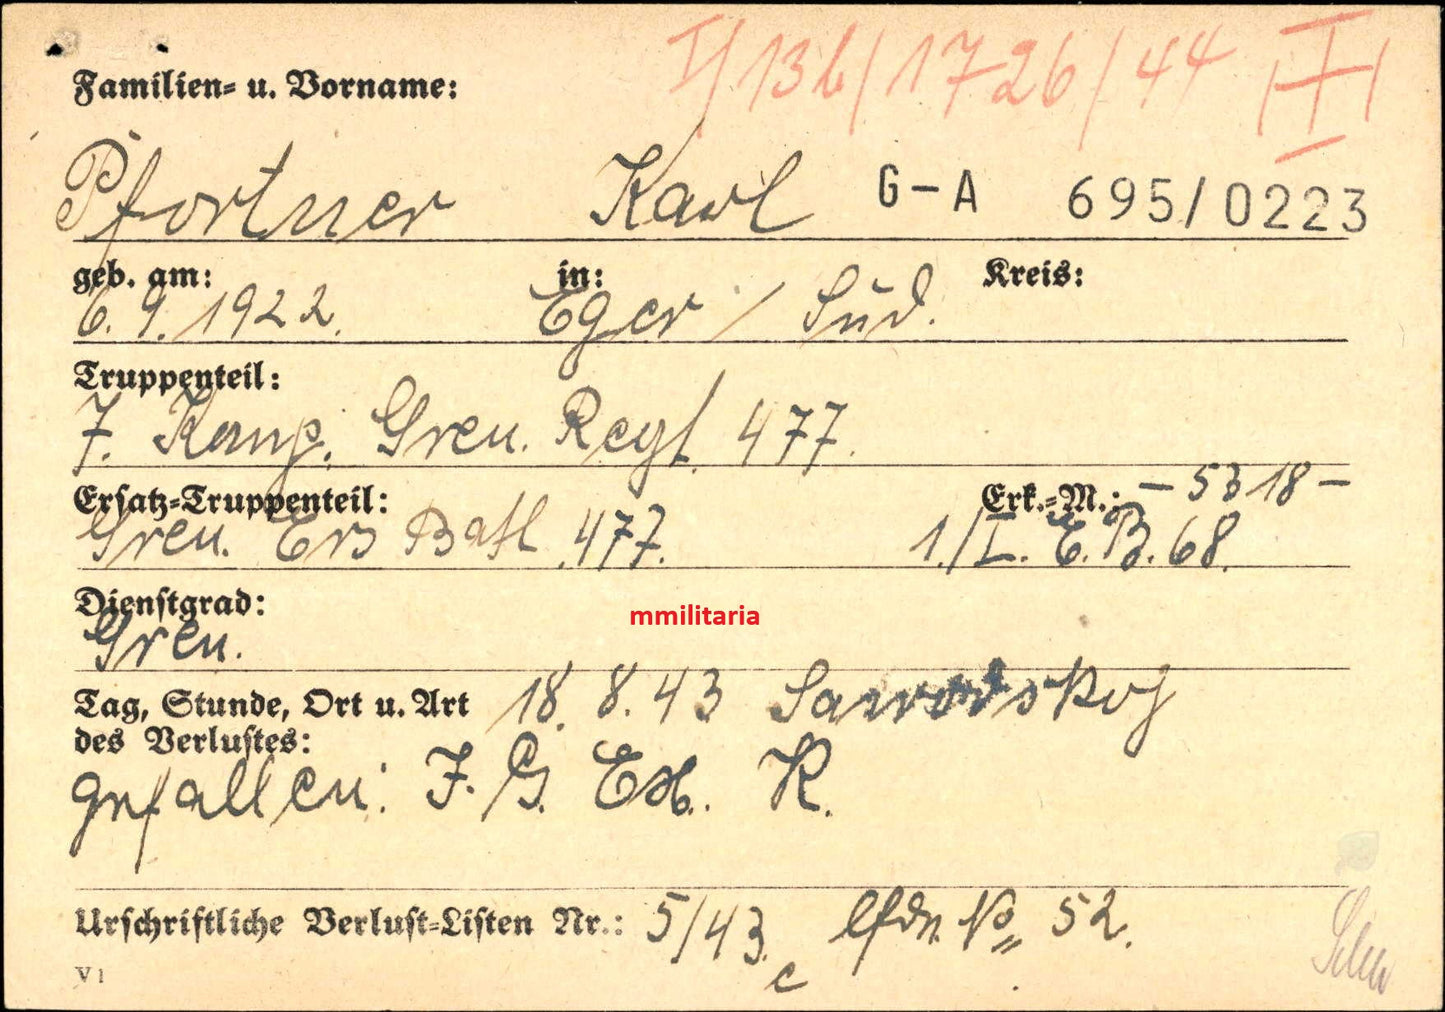 I/13b/1726/44 I
Familien- u. Vorname:
Pfortner Karl G-A 695/0223
geb. am: in: Kreis:
6. 9. 1922. Eger / Süd.
Truppenteil:
7. Komp. Gren. Regt. 477.
Ersatz-Truppenteil: Erk.-M.: - 5318 -
Gren. Ers Batl. 477. 1./I. E. B. 68.
Dienstgrad:
mmilitaria
Gren.
Tag, Stunde, Ort u. Art 18. 8. 43
des Verlustes:
gefallen: J. G. K.
Urschriftliche Verlust-Listen Nr.: 5/43 c lfde No 52.
V 1